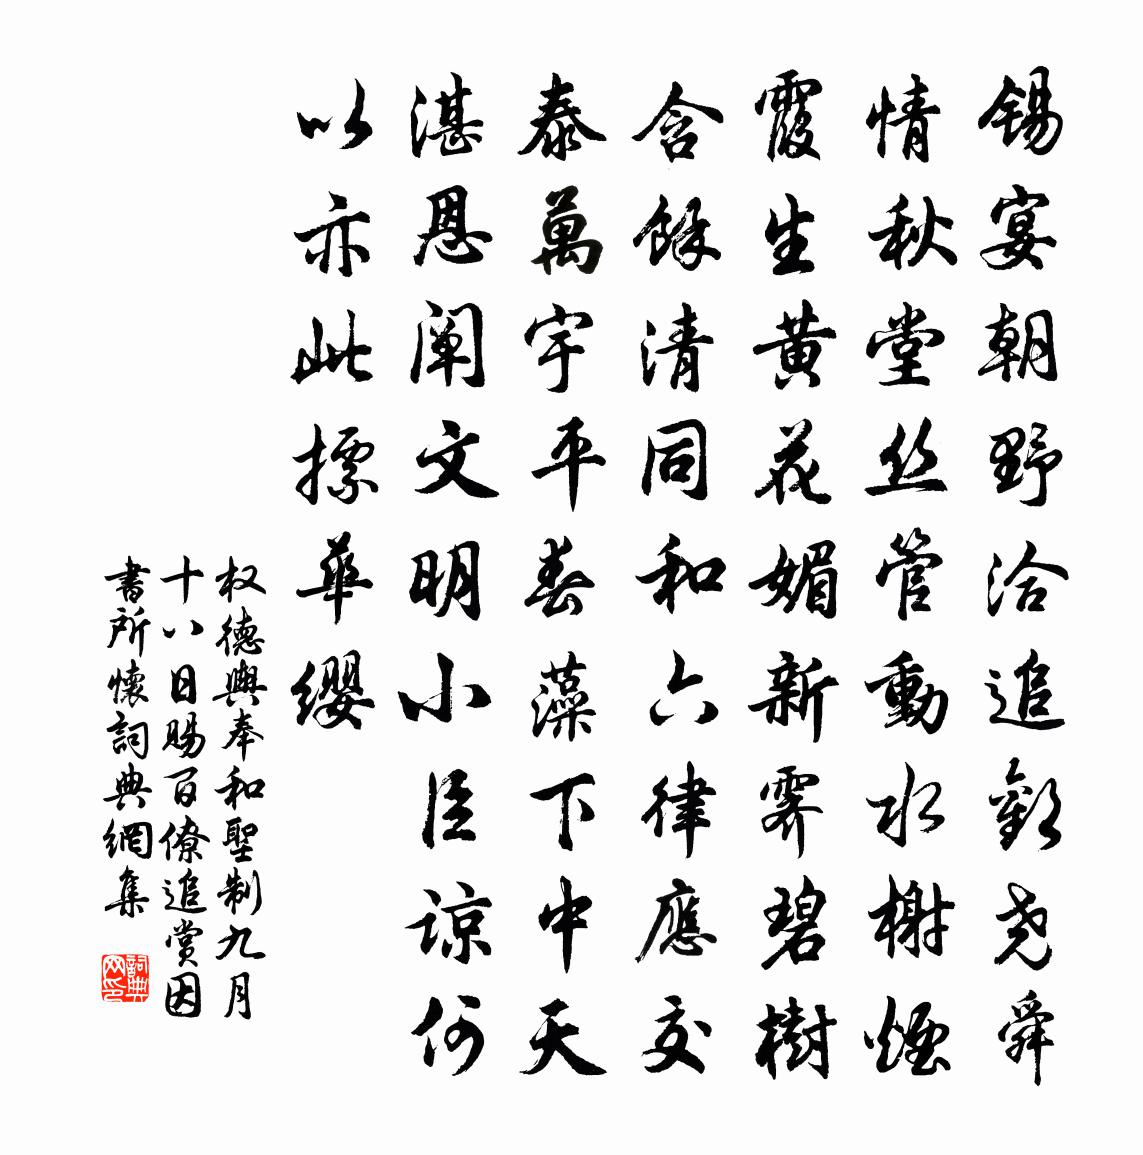 锡宴朝野洽追歡尧舜
情秋堂丝管動水榭煙
霞生黄花媚新霽碧樹
含餘清同和六律應交
泰萬宇平春藻下中天
湛恩阐文明小臣谅何
以亦此摽華缨
权德輿奉和聖制九月
十八日賜百僚追賞因
書所懷詞典網集
詞典网印